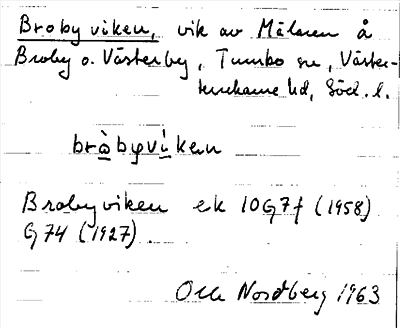 Brobyviken, vik av Mälaren å
Broby o. Västerby, Tumbo sn, Väster-
rekarne hd, Söd. l.
bròbyvìken
Brobyviken ek 10G7f (1958)
G74 (1927).
Olle Nordberg 1963